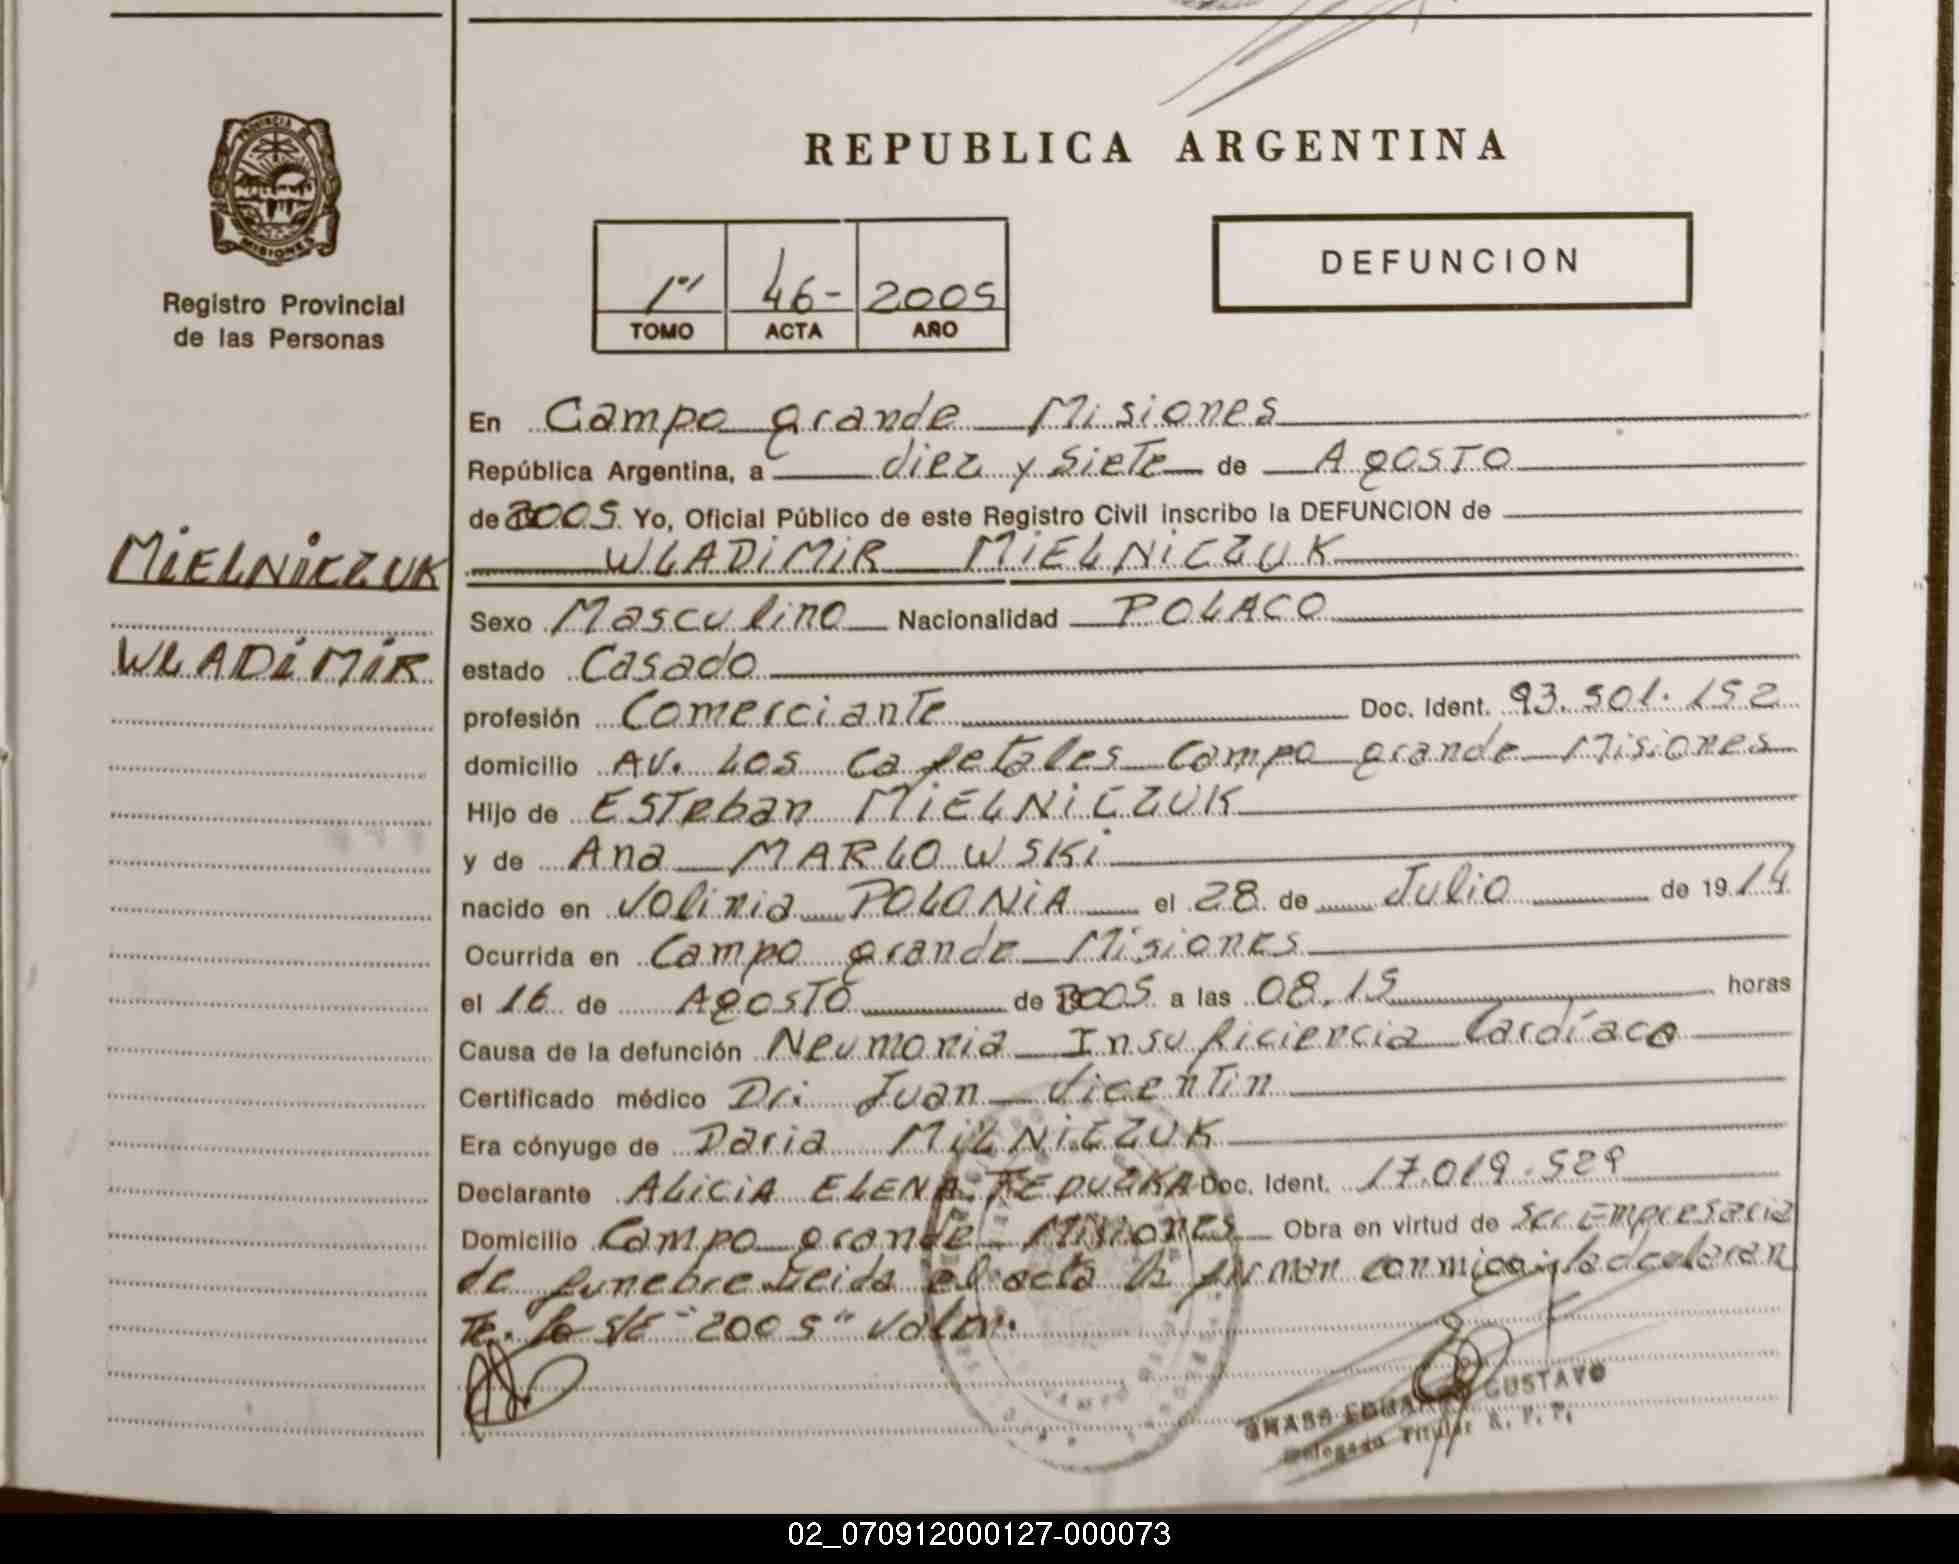 REPUBLICA ARGENTINA
PROVINCIA DE
MISIONES
Registro Provincial
de las Personas
1º 46- 2005
TOMO ACTA AÑO
DEFUNCION
MiELNiCZUK
WLADiMiR
En Campo grande Misiones
República Argentina, a diez y siete de Agosto
de 2005 Yo, Oficial Público de este Registro Civil inscribo la DEFUNCION de
WLADiMiR MiELNiCZUK
Sexo Masculino Nacionalidad POLACO
estado Casado
profesión Comerciante Doc. Ident. 93.501.152
domicilio AV. Los Cafetales Campo grande Misiones
Hijo de Esteban MiELNiCZUK
y de Ana MARLOWSKi
nacido en Volinia POLONiA el 28 de Julio de 1914
Ocurrida en Campo grande Misiones
el 16 de Agosto de 2005 a las 08.15 horas
Causa de la defunción Neumonia Insuficiencia Cardíaca
Certificado médico Dr. Juan Vicentin
Era cónyuge de Daria MiLNiCZUK
Declarante ALiCiA ELENA Doc. Ident. 17.019.529
Domicilio Campo grande Misiones Obra en virtud de ser Empresaria
de funebre Leida el acta la firman conmigo la declaran
te. "2005" valen.
GUSTAVO
Delegado Titular R. P. P.
02_070912000127-000073